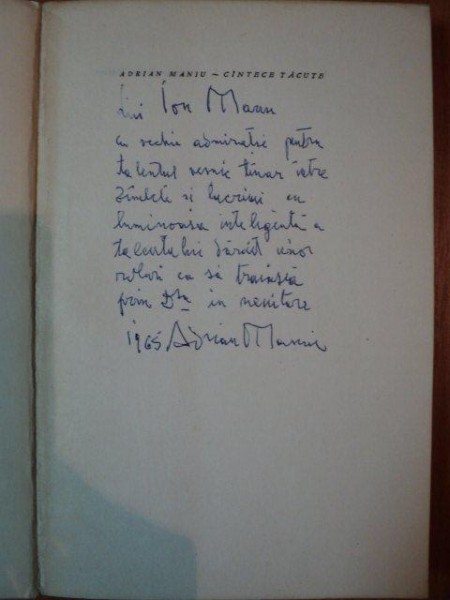 ADRIAN MANIU — CÎNTECE TĂCUTE
Lui Ion Manu
cu veche admirație pentru
talentul vesnic tînar între
zîmbete si lacrimi cu
luminoasa inteligență a
talentului dăruit unor
roluri ca să traiască
prin Dta in nemurire
1965 Adrian Maniu